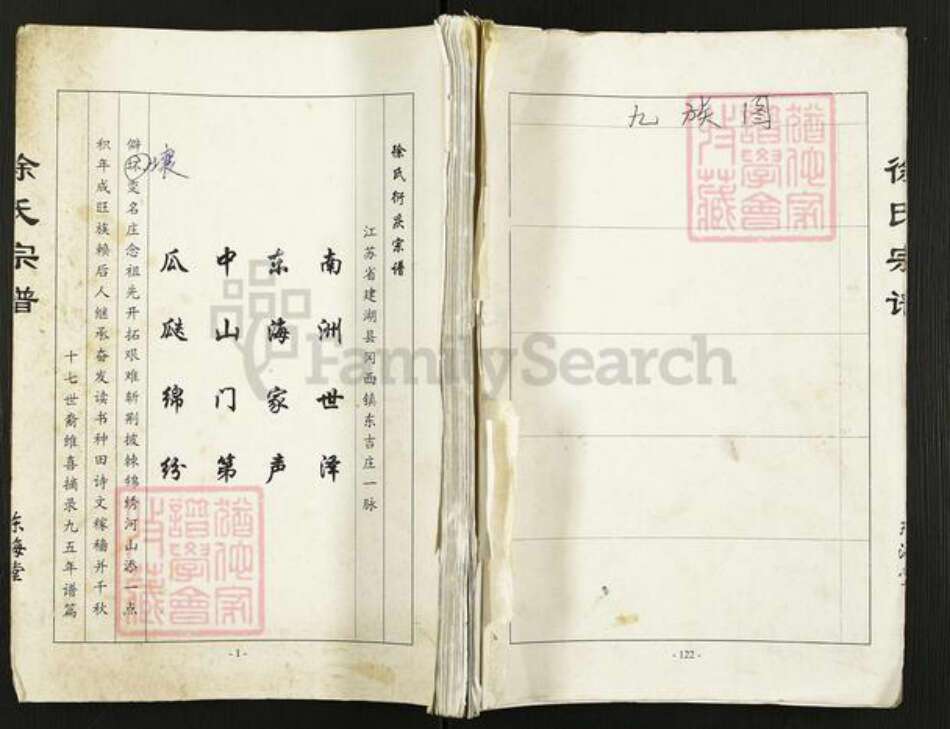 徐氏宗谱
东海堂
徐氏衍庆宗谱
江苏省建湖县冈西镇东吉庄一脉
南洲世泽
东海家声
中山门第
瓜瓞绵纷
僻坏变名庄念祖先开拓艰难斩荆披棘锦绣河山添一点
壤
积年成旺族赖后人继承奋发读书种田诗文稼穑并千秋
十七世裔维喜摘录九五年谱篇
- 1 -
九族图
- 122 -
徐氏宗谱
FamilySearch